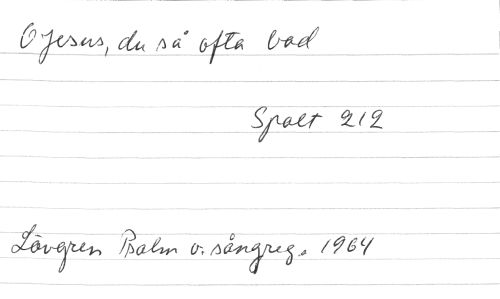 O Jesus, du så ofta bad
Spalt 212
Lövgren Psalm o. sångreg. 1964